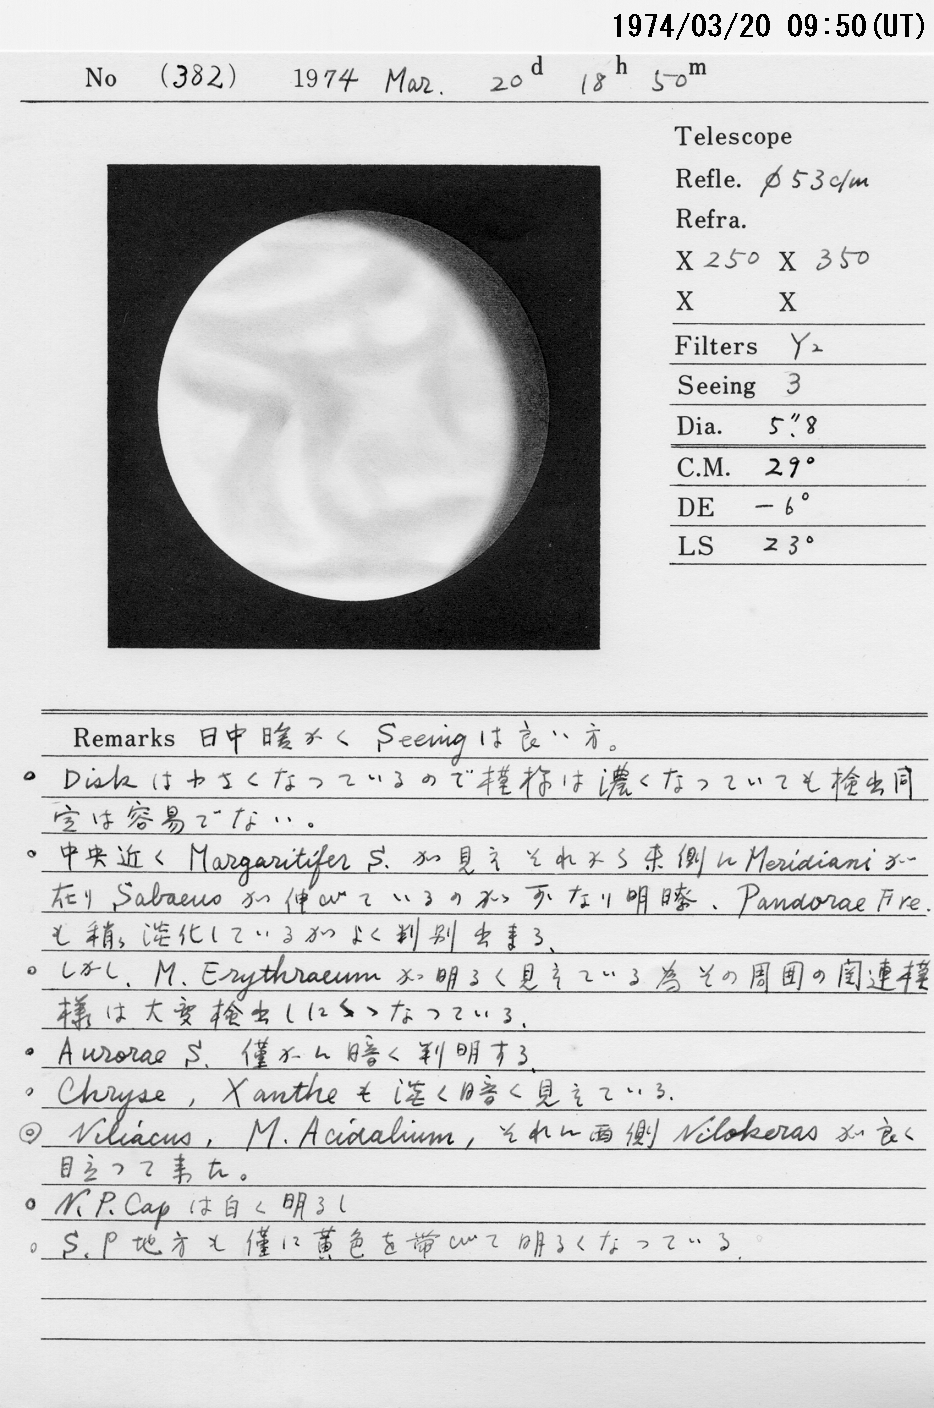 1974/03/20 09:50(UT)
No (382) 1974 Mar. 20d 18h 50m
Telescope
Refle. φ53c/m
Refra.
X 250 X 350
X X
Filters Y₂
Seeing 3
Dia. 5".8
C.M. 29°
DE -6°
LS 23°
Remarks 日中暖かく Seeingは良い方。
Diskは小さくなっているので模様は濃くなっていても検出同
定は容易でない。
中央近く Margaritifer S. が見えそれから東側にMeridianiが
在り Sabaeusが伸びているのが可なり明瞭、Pandorae Fre.
も稍々淡化しているがよく判別出来る、
しかし、M. Erythraeumが明るく見えている為その周囲の関連模
様は大変検出しにくゝなっている、
Aurorae S. 僅かに暗く判明する、
Chryse, Xantheも淡く暗く見えている、
◎ Niliacus, M. Acidalium, それに西側 Nilokerasが良く
目立って来た。
N.P.Capは白く明るし
S.P地方も僅に黄色を帯びて明るくなっている、